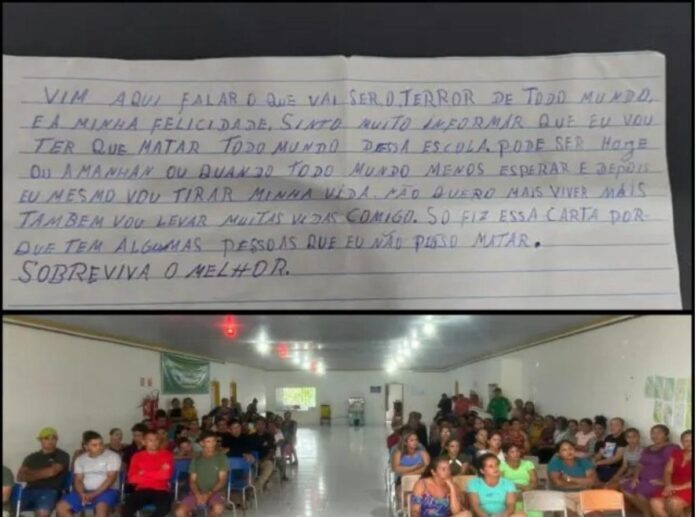 VIM AQUI FALAR O QUE VAI SER O TERROR DE TODO MUNDO,
E A MINHA FELICIDADE. SINTO MUITO INFORMAR QUE EU VOU
TER QUE MATAR TODO MUNDO DESSA ESCOLA. PODE SER HOGE
OU AMANHAN OU QUANDO TODO MUNDO MENOS ESPERAR E DEPOIS
EU MESMO VOU TIRAR MINHA VIDA. NÃO QUERO MAIS VIVER MAIS
TAMBEM VOU LEVAR MUITAS VIDAS COMIGO. SO FIZ ESSA CARTA POR-
QUE TEM ALGUMAS PESSOAS QUE EU NÃO POSSO MATAR.
SOBREVIVA O MELHOR.